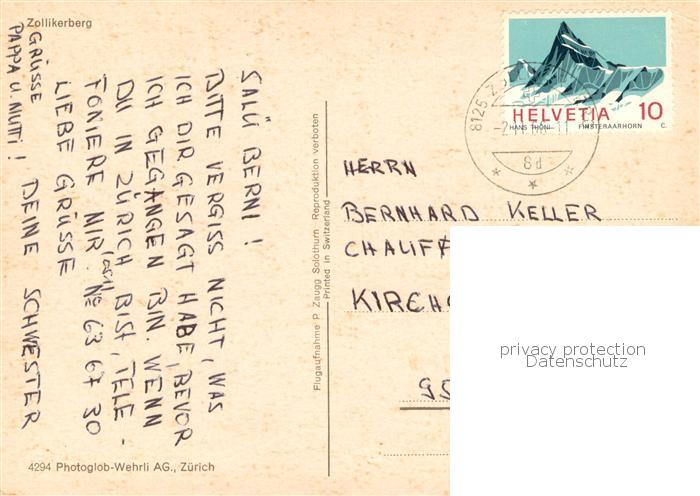 Zollikerberg
SALÜ BERNI!
BITTE VERGISS NICHT, WAS
ICH DIR GESAGT HABE, BEVOR
ICH GEGANGEN BIN. WENN
DU IN ZÜRICH BIST, TELE-
FONIERE MIR. No 63 67 30
LIEBE GRÜSSE
DEINE SCHWESTER
GRÜSSE
PAPPA U. MUTTI!
Flugaufnahme P. Zaugg Solothurn Reproduktion verboten
Printed in Switzerland
4294 Photoglob-Wehrli AG., Zürich
HELVETIA 10
HANS THÖNI FINSTERAARHORN C.
8125
HERRN
BERNHARD KELLER
CHALIFF
KIRCH
privacy protection
Datenschutz